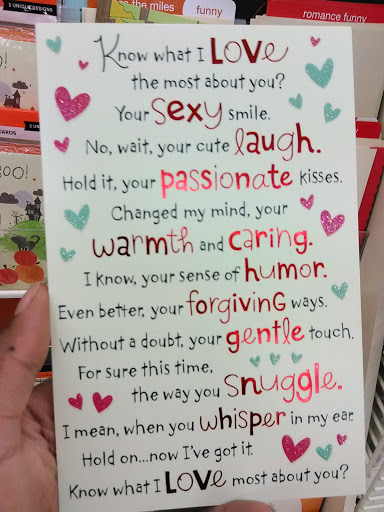 2 UNIQUE DESIGNS
the miles
funny
romance funny
Know what I LOVE
the most about you?
Your sexy smile.
No, wait, your cute laugh.
Hold it, your passionate kisses.
Changed my mind, your
warmth and caring.
I know, your sense of humor.
Even better, your forgiving ways.
Without a doubt, your gentle touch.
For sure this time,
the way you snuggle.
I mean, when you whisper in my ear.
Hold on...now I've got it.
Know what I LOVE most about you?
CARDS
BOO!